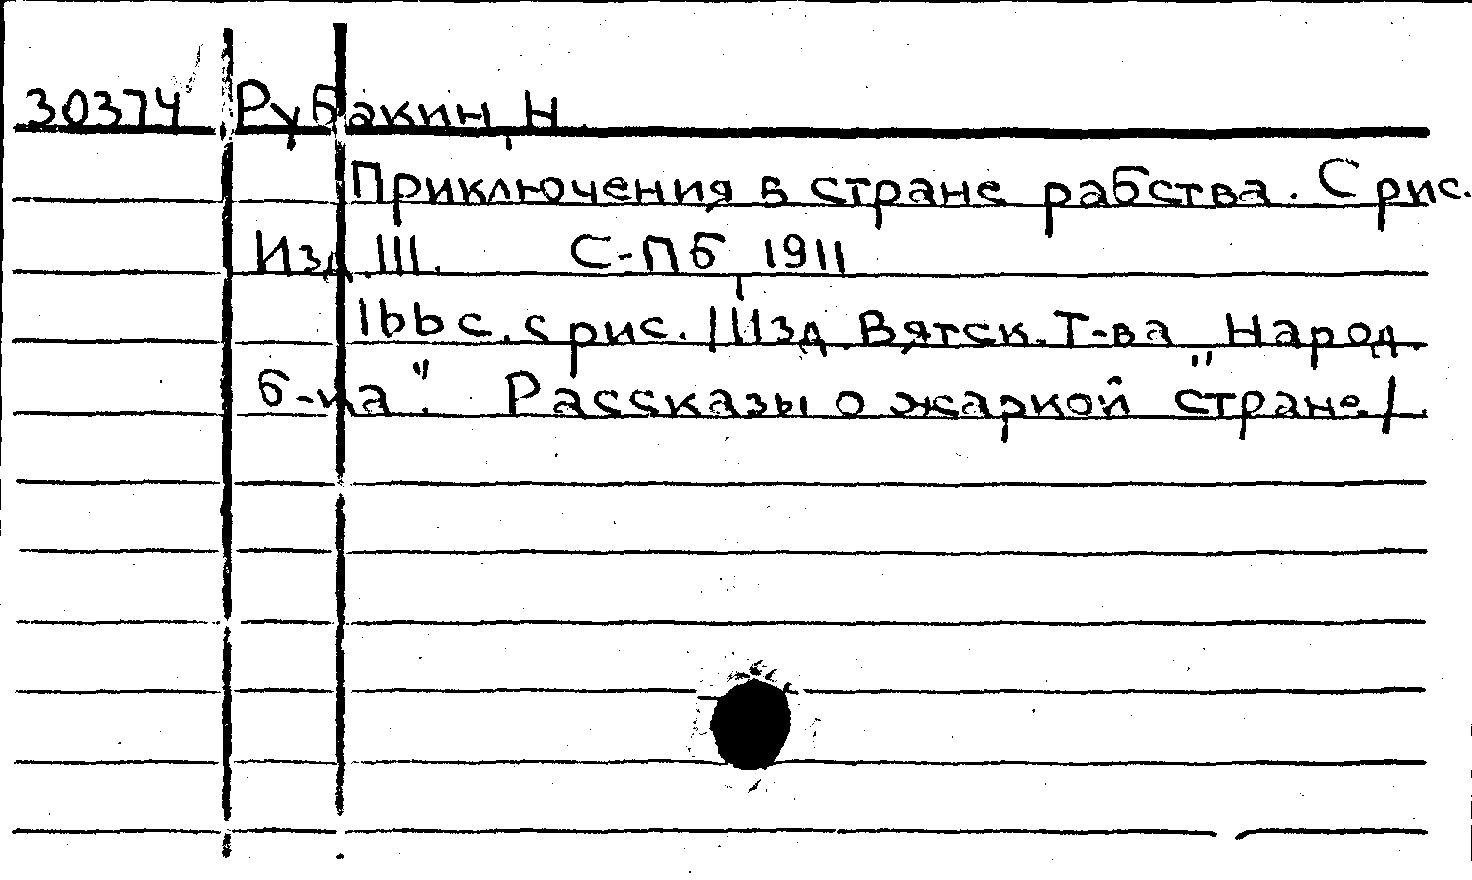 30374 Рубакин, Н.
Приключения в стране рабства. С рис.
Изд. III. С-Пб, 1911
166 с. с рис. /Изд. Вятск. Т-ва "Народ.
б-ка". Рассказы о жаркой стране/.